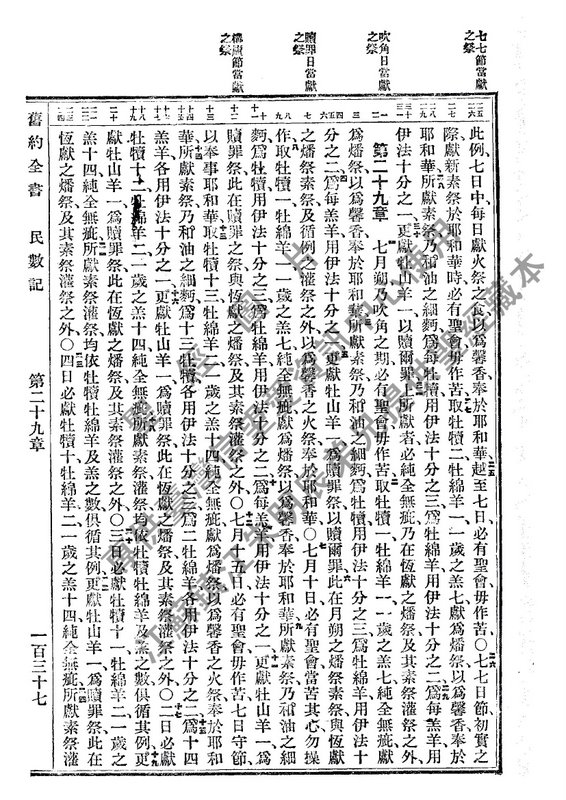 七七節當獻
之祭
吹角日當獻
之祭
贖罪日當獻
之祭
構廬節當獻
之祭
此例七日中、每日獻火祭之食、以爲馨香、奉於耶和華、越至七日、必有聖會、毋作苦、〇七七日節、初實之
際、獻新素祭於耶和華時、必有聖會、毋作苦、取牡犢二、牡綿羊一、一歲之羔七、獻爲燔祭、以爲馨香、奉於
耶和華、所獻素祭、乃和油之細麪、爲每牡犢、用伊法十分之三、爲牡綿羊、用伊法十分之二、爲每羔羊、用
伊法十分之一、更獻牡山羊一、以贖爾罪、上所獻者、必純全無疵、乃在恆獻之燔祭、及其素祭灌祭之外、
第二十九章 七月朔、乃吹角之期、必有聖會、毋作苦、取牡犢一、牡綿羊一、一歲之羔七、純全無疵、獻
爲燔祭、以爲馨香、奉於耶和華、所獻素祭、乃和油之細麪、爲牡犢、用伊法十分之三、爲牡綿羊、用伊法十
分之二、爲每羔羊、用伊法十分之一、更獻牡山羊一、爲贖罪祭、以贖爾罪、此在月朔之燔祭素祭、與恆獻
之燔祭素祭、及循例之灌祭之外、以爲馨香之火祭、奉於耶和華、〇七月十日、必有聖會、當苦其心、勿操
作、取牡犢一、牡綿羊一、一歲之羔七、純全無疵、獻爲燔祭、以爲馨香、奉於耶和華、所獻素祭、乃和油之細
麪、爲牡犢、用伊法十分之三、爲牡綿羊、用伊法十分之二、爲每羔羊、用伊法十分之一、更獻牡山羊一、爲
贖罪祭、此在贖罪之祭、與恆獻之燔祭、及其素祭灌祭之外、〇七月十五日、必有聖會、毋作苦、七日守節、
以奉事耶和華、取牡犢十三、牡綿羊二、一歲之羔十四、純全無疵、獻爲燔祭、以爲馨香之火祭、奉於耶和
華、所獻素祭、乃和油之細麪、爲十三牡犢、各用伊法十分之三、爲二牡綿羊、各用伊法十分之二、爲十四
羔羊、各用伊法十分之一、更獻牡山羊一、爲贖罪祭、此在恆獻之燔祭、及其素祭灌祭之外、〇二日必獻
牡犢十二、牡綿羊二、一歲之羔十四、純全無疵、所獻素祭灌祭、均依牡犢牡綿羊及羔之數、俱循其例、更
獻牡山羊一、爲贖罪祭、此在恆獻之燔祭、及其素祭灌祭之外、〇三日必獻牡犢十一、牡綿羊二、一歲之
羔十四、純全無疵、所獻素祭灌祭、均依牡犢牡綿羊及羔之數、俱循其例、更獻牡山羊一、爲贖罪祭、此在
恆獻之燔祭、及其素祭灌祭之外、〇四日必獻牡犢十、牡綿羊二、一歲之羔十四、純全無疵、所獻素祭灌
舊約全書 民數記 第二十九章 一百三十七